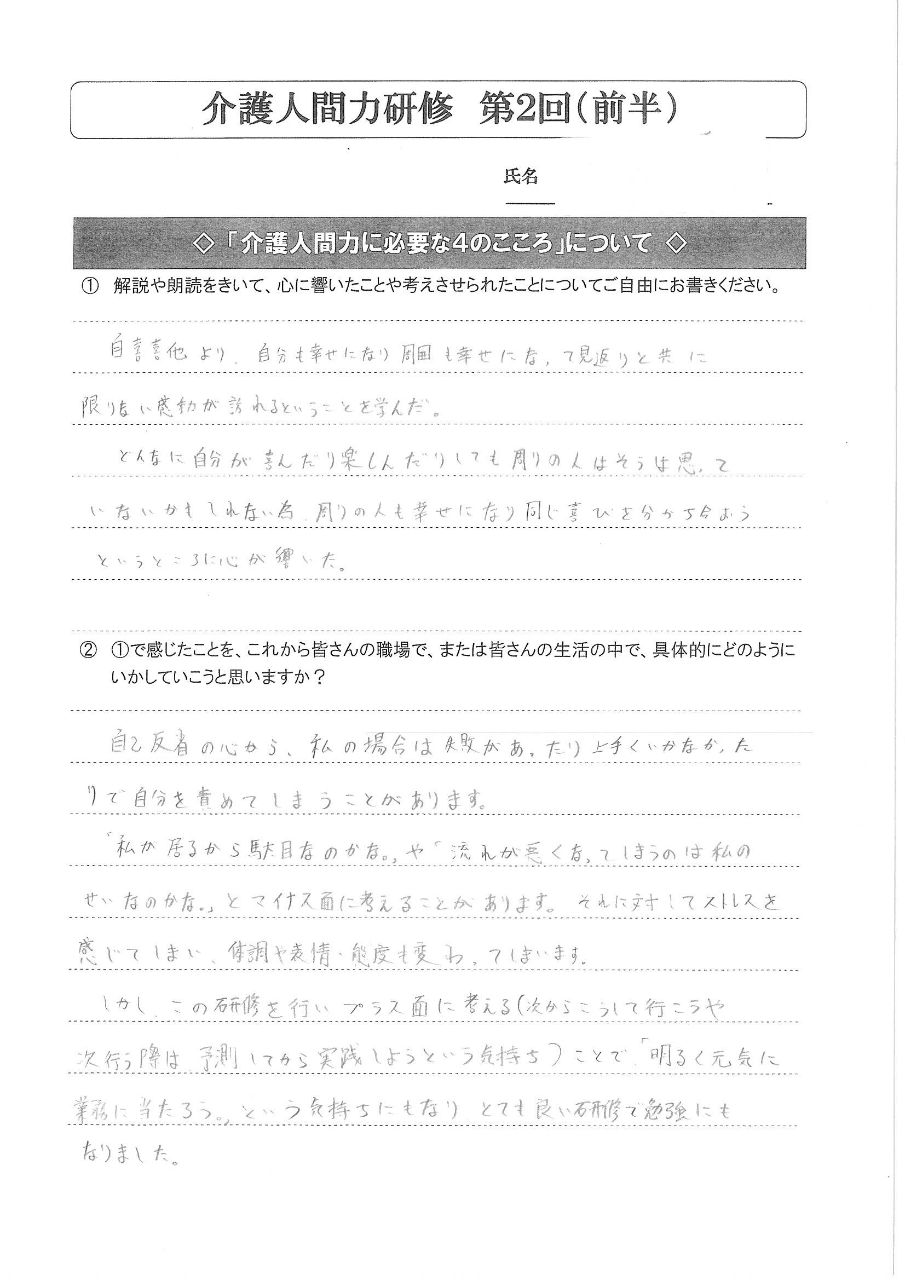 介護人間力研修 第2回(前半)
氏名
◇「介護人間力に必要な4のこころ」について ◇
① 解説や朗読をきいて、心に響いたことや考えさせられたことについてご自由にお書きください。
自喜喜他より、自分も幸せになり周囲も幸せになって見返りと共に
限りない感動が訪れるということを学んだ。
どんなに自分が喜んだり楽しんだりしても周りの人はそうは思って
いないかもしれない為、周りの人も幸せになり同じ喜びを分かち合おう
というところに心が響いた。
② ①で感じたことを、これから皆さんの職場で、または皆さんの生活の中で、具体的にどのように
いかしていこうと思いますか？
自己反省の心から、私の場合は失敗があったり上手くいかなかった
りで自分を責めてしまうことがあります。
「私が居るから駄目なのかな。」や「流れが悪くなってしまうのは私の
せいなのかな。」とマイナス面に考えることがあります。それに対してストレスを
感じてしまい、体調や表情・態度も変わってしまいます。
しかし、この研修を行いプラス面に考える(次からこうして行こうや
次行う際は、予測してから実践しようという気持ち)ことで、「明るく元気に
業務に当たろう。」という気持ちにもなり、とても良い研修で勉強にも
なりました。